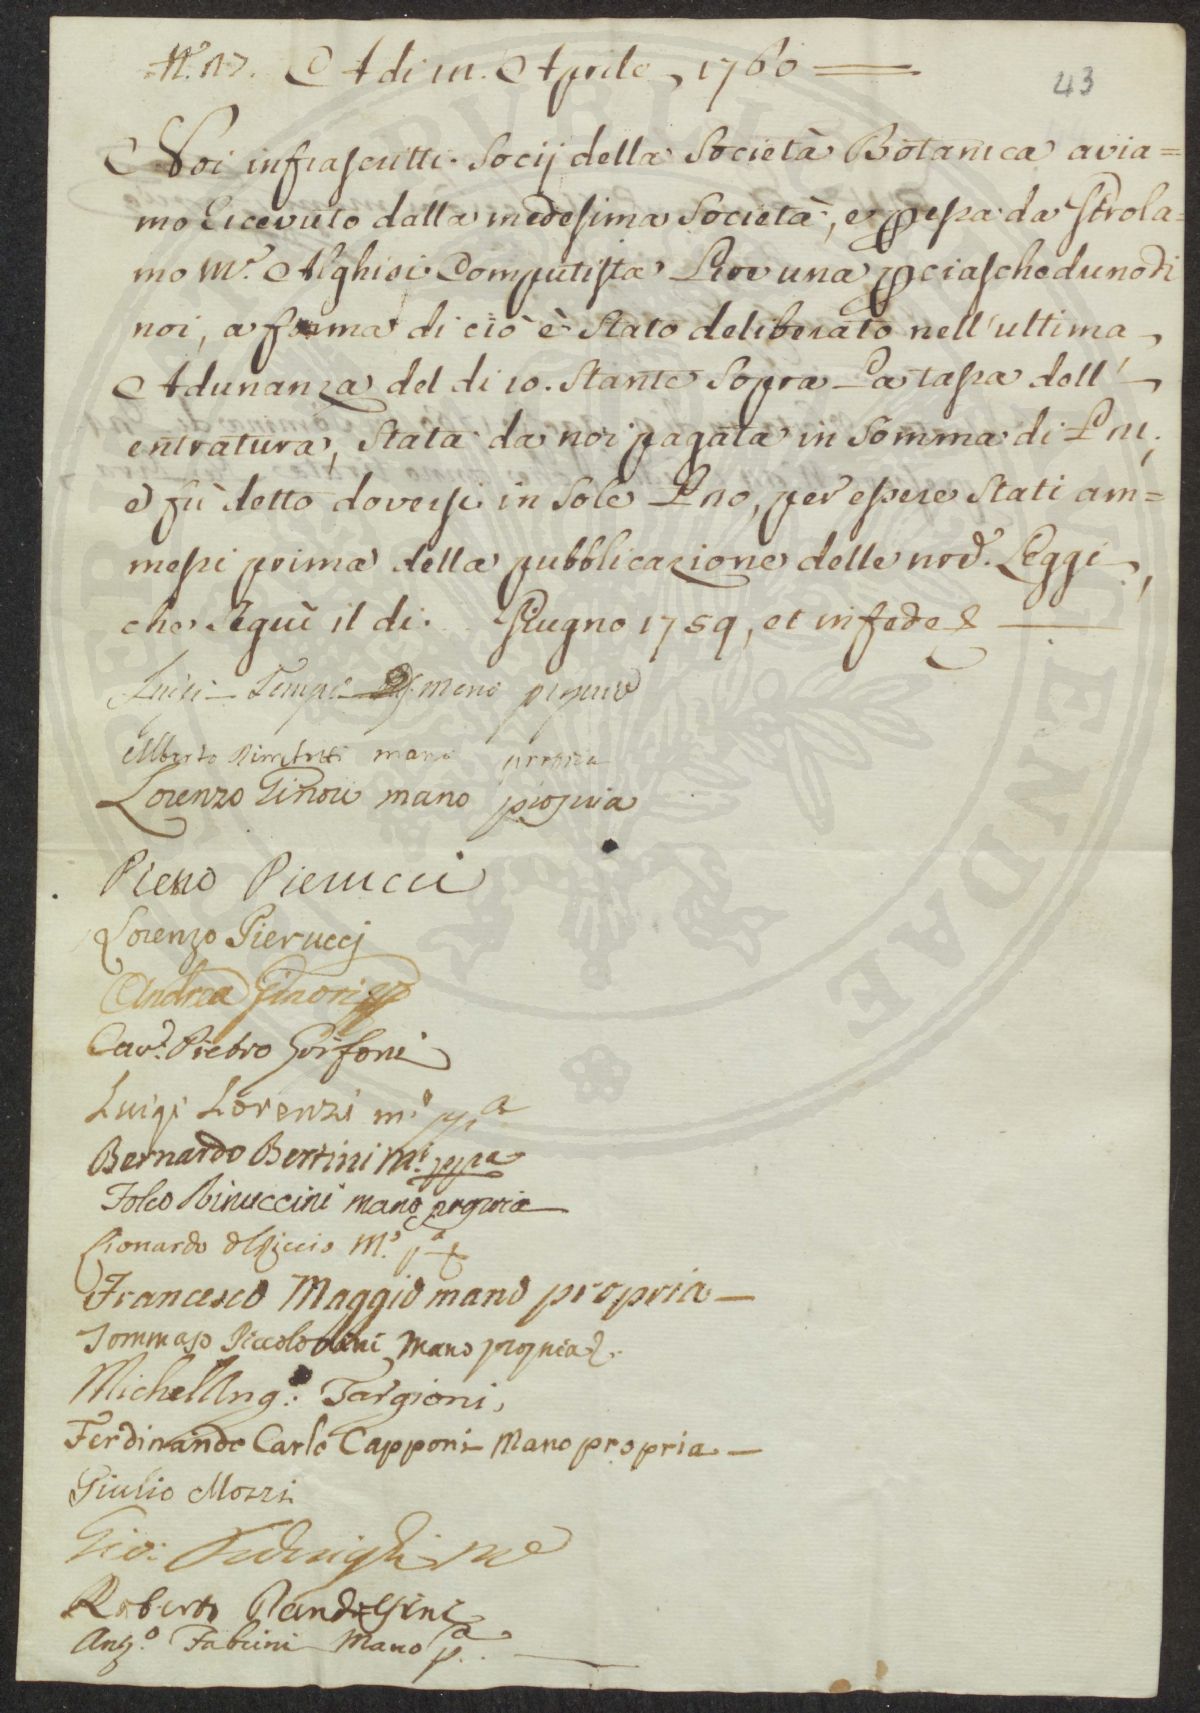 N.° 17. Adi 111. Aprile 1760
43
Noi infrascritti Socij della Società Botanica avia=
mo Ricevuto dalla medesima Società, e p essa da Girola=
mo M.ª Alghisi Computista Lire una p ciaschedunodi
noi, a forma di ciò è Stato deliberato nell'ultima
Adunanza del di 10. Stante Sopra La tassa dell'
entratura, Stata da noi pagata in Somma di L 11.
e fù detto doversi in Sole L 10, per essere Stati am=
messi prima della pubblicazione delle nrẽ. Leggi,
che Seguì il di. Giugno 1759, et in fede
Luigi Tempi mano propria
Alberto Rimbotti mano propria
Lorenzo Ginori mano propria
Piero Pierucci
Lorenzo Pierucci
Andrea Ginori
Cav.e Pietro Grifoni
Luigi Lorenzi m.° p.a
Bernardo Bertini M.° ppa
Folco Rinuccini mano propria
Lionardo del Riccio M.° p.a
Francesco Maggio mano propria
Tommaso Piccolomini Mano propria
Michel Ang.° Targioni
Ferdinando Carlo Capponi Mano propria
Giulio Mozzi
Gio: Federighi
Roberto Pandolfini
Ang.° Fabrini Mano p.a